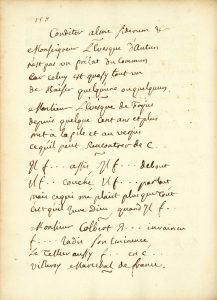 Conditor alme siderum &
Monseigneur L'Evesque d'Autun
n'est pas un prélat du commun
Car celuy est quasy tout un
de Baiser quelqu'une ou quelqu'un.
Monsieur L'Evesque de
depuis quelque Cent ans et plus
met a la pile et au
ce qu'il peut Rencontrer de C.
Il f... assis Il f... debout
Il f... couché Il f... partout
mais ce qui me plaist plus que tout
c'est que Dieu quand Il f...
Monsieur Colbert
f... Jadis son Eminence
Le Tellier aussy f... en c...
Villeroy Mareschal de france.